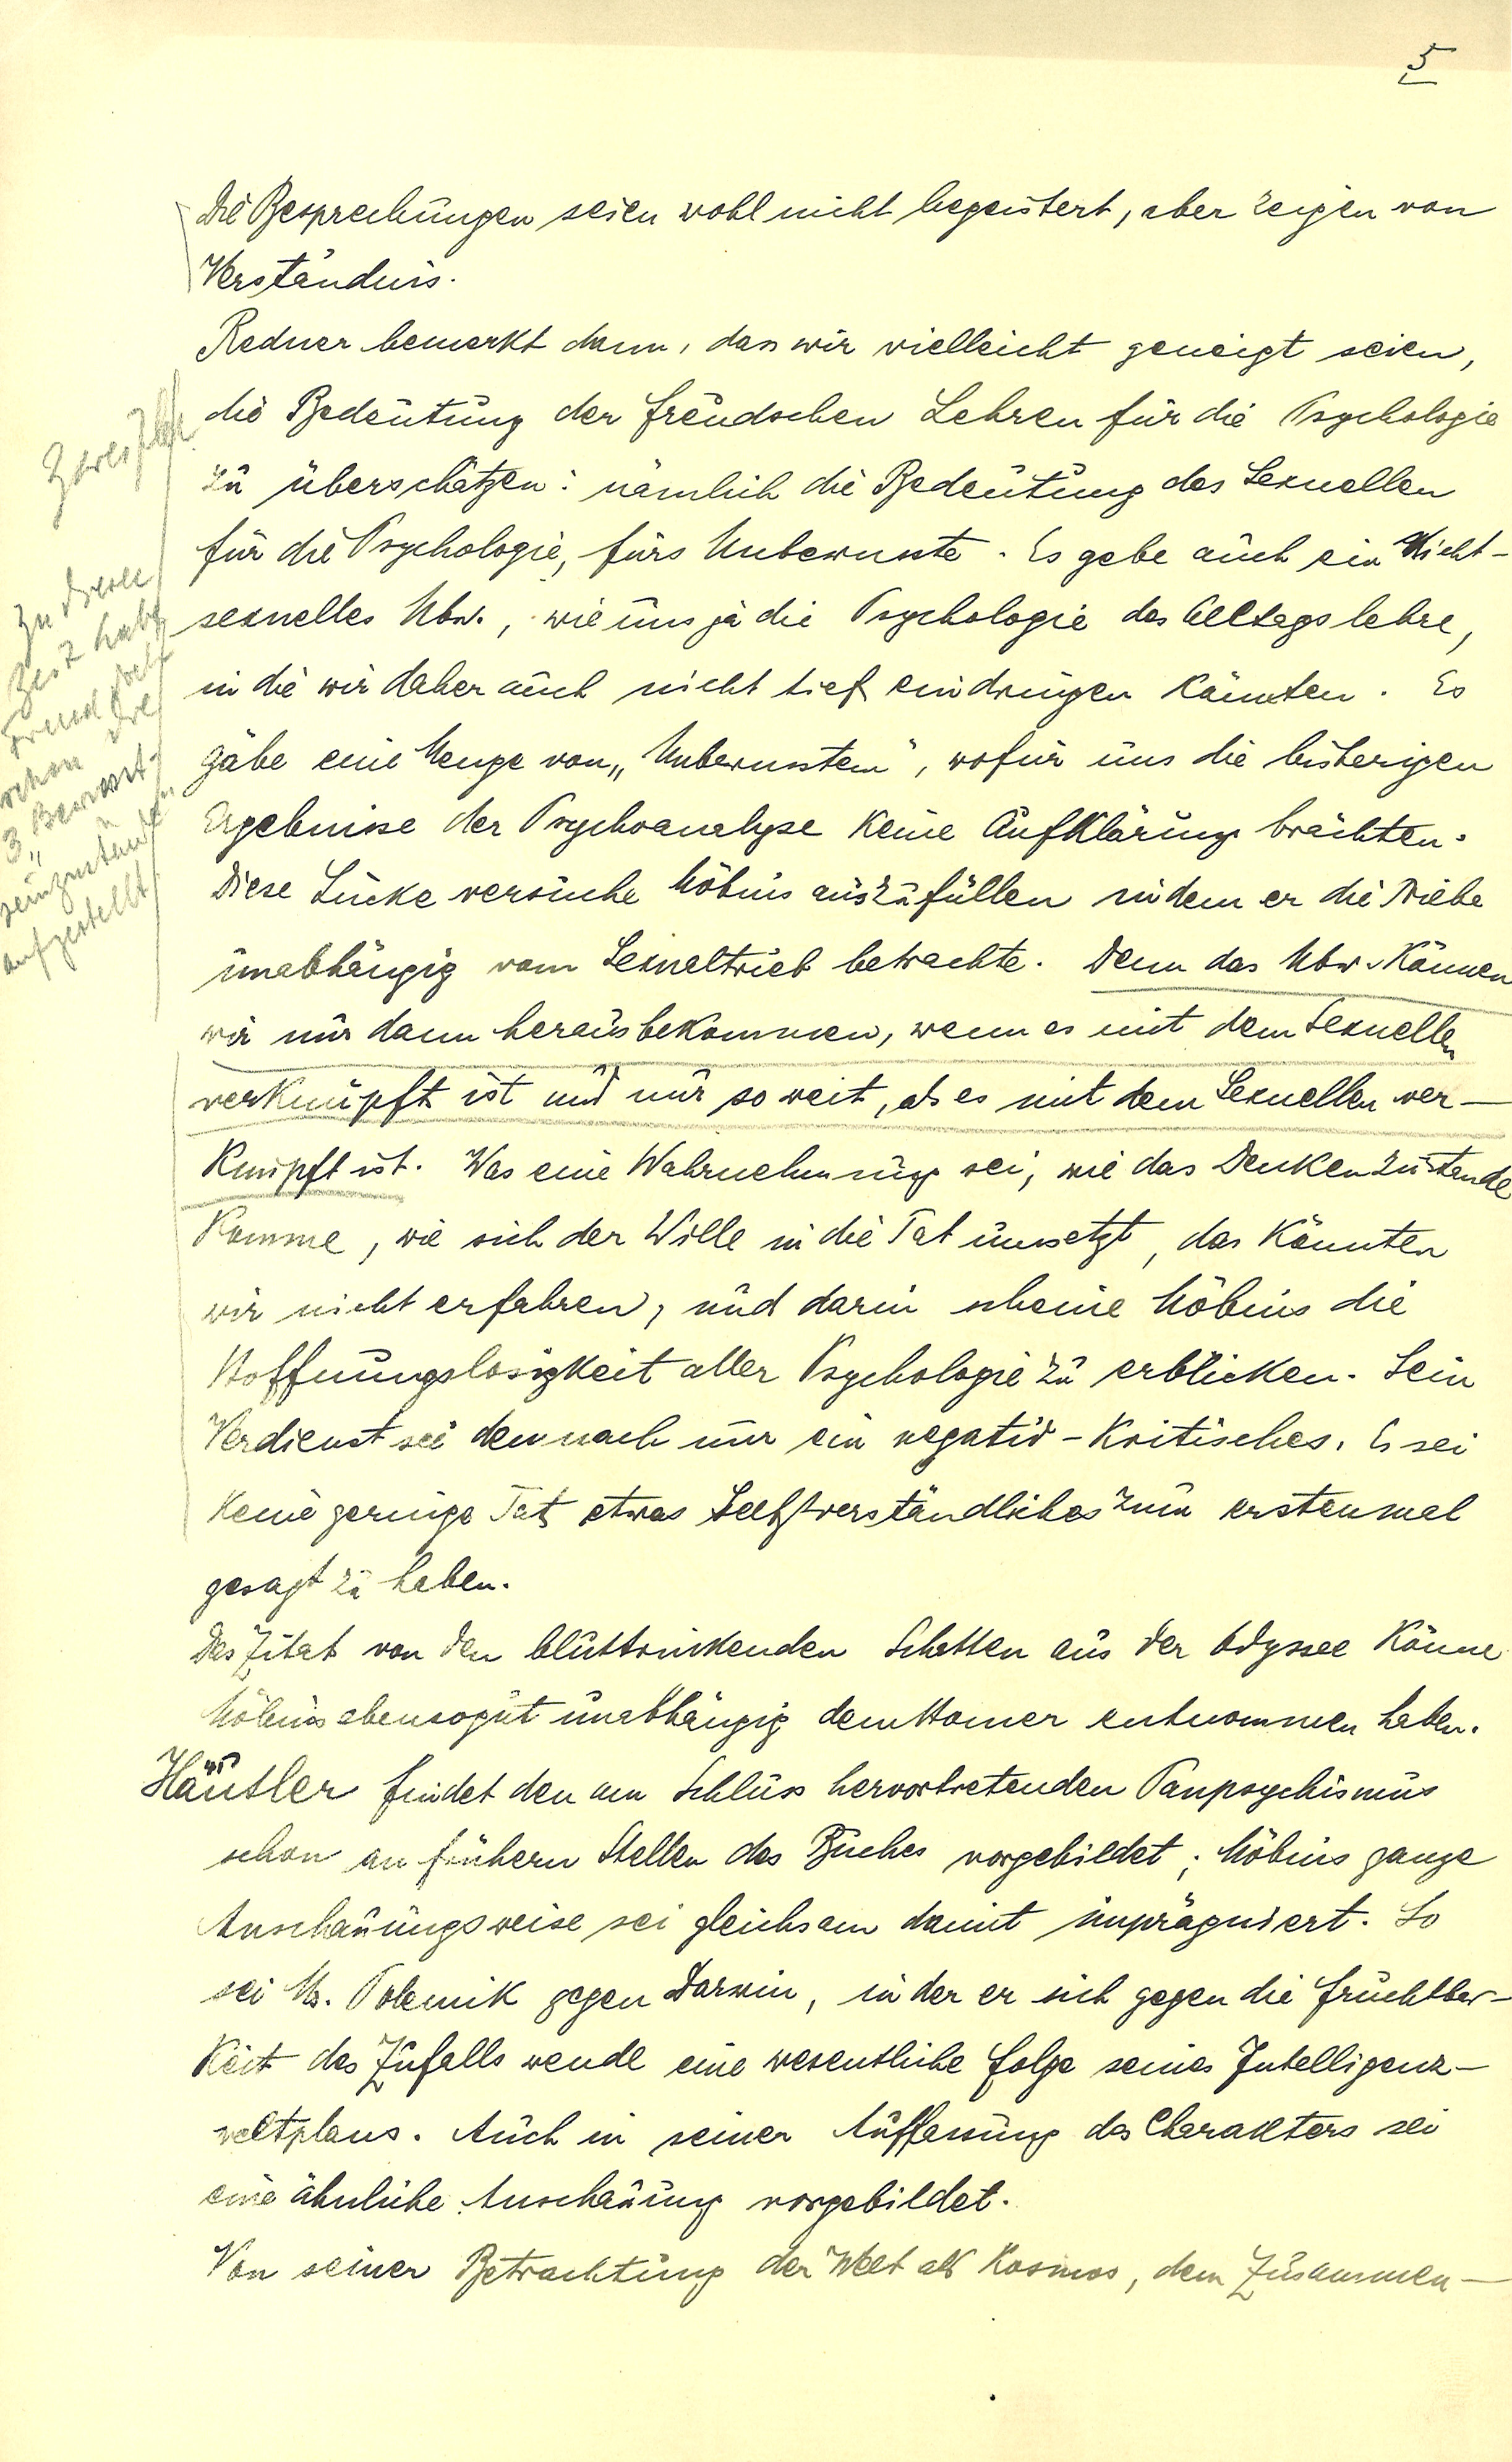 5
Die Besprechungen seien wohl nicht begeistert, aber zeigen von
Verständnis.
Redner bemerkt dann, dass wir vielleicht geneigt seien,
die Bedeutung der Freudschen Lehren für die Psychologie
zu überschätzen: nämlich die Bedeutung des Sexuellen
für die Psychologie, fürs Unbewusste. Es gebe auch ein Nicht-
sexuelles Ubw., wie uns ja die Psychologie des Alltags lehre,
in die wir daher auch nicht tief eindringen könnten. Es
gäbe eine Menge von „Unbewusstem", wofür uns die bisherigen
Ergebnisse der Psychoanalyse keine Aufklärung brächten.
Diese Lücke versuche Möbius auszufüllen indem er die Triebe
unabhängig vom Sexualtrieb betrachte. Denn das Ubw. können
wir nur dann herausbekommen, wenn es mit dem Sexuellen
verknüpft ist und nur so weit, als es mit dem Sexuellen ver-
knüpft ist. Was eine Wahrnehmung sei, wie das Denken zustande
komme, wie sich der Wille in die Tat umsetzt, das könnten
wir nicht erfahren, und darin scheine Möbius die
Hoffnungslosigkeit aller Psychologie zu erblicken. Sein
Verdienst sei demnach nur ein negativ-kritisches. Es sei
keine geringe Tat, etwas Selbstverständliches zum erstenmal
gesagt zu haben.
Das Zitat von den bluttrinkenden Schatten aus der Odyssee könne
Möbius ebensogut unabhängig dem Homer entnommen haben.
Häutler findet den am Schluss hervortretenden Panpsychismus
schon an frühern Stellen des Buches vorgebildet; Möbius ganze
Anschauungsweise sei gleichsam damit imprägniert. So
sei M. Polemik gegen Darwin, in der er sich gegen die Fruchtbar-
keit des Zufalls wende eine wesentliche Folge seines Intelligenz-
weltplans. Auch in seiner Auffassung des Charakters sei
eine ähnliche Anschauung vorgebildet.
Von seiner Betrachtung der Welt als Kosmos, dem Zusammen-
Zu dieser
Zeit habe
Freud doch
schon die
3 „Bewusst-
seinzuständen
aufgestellt